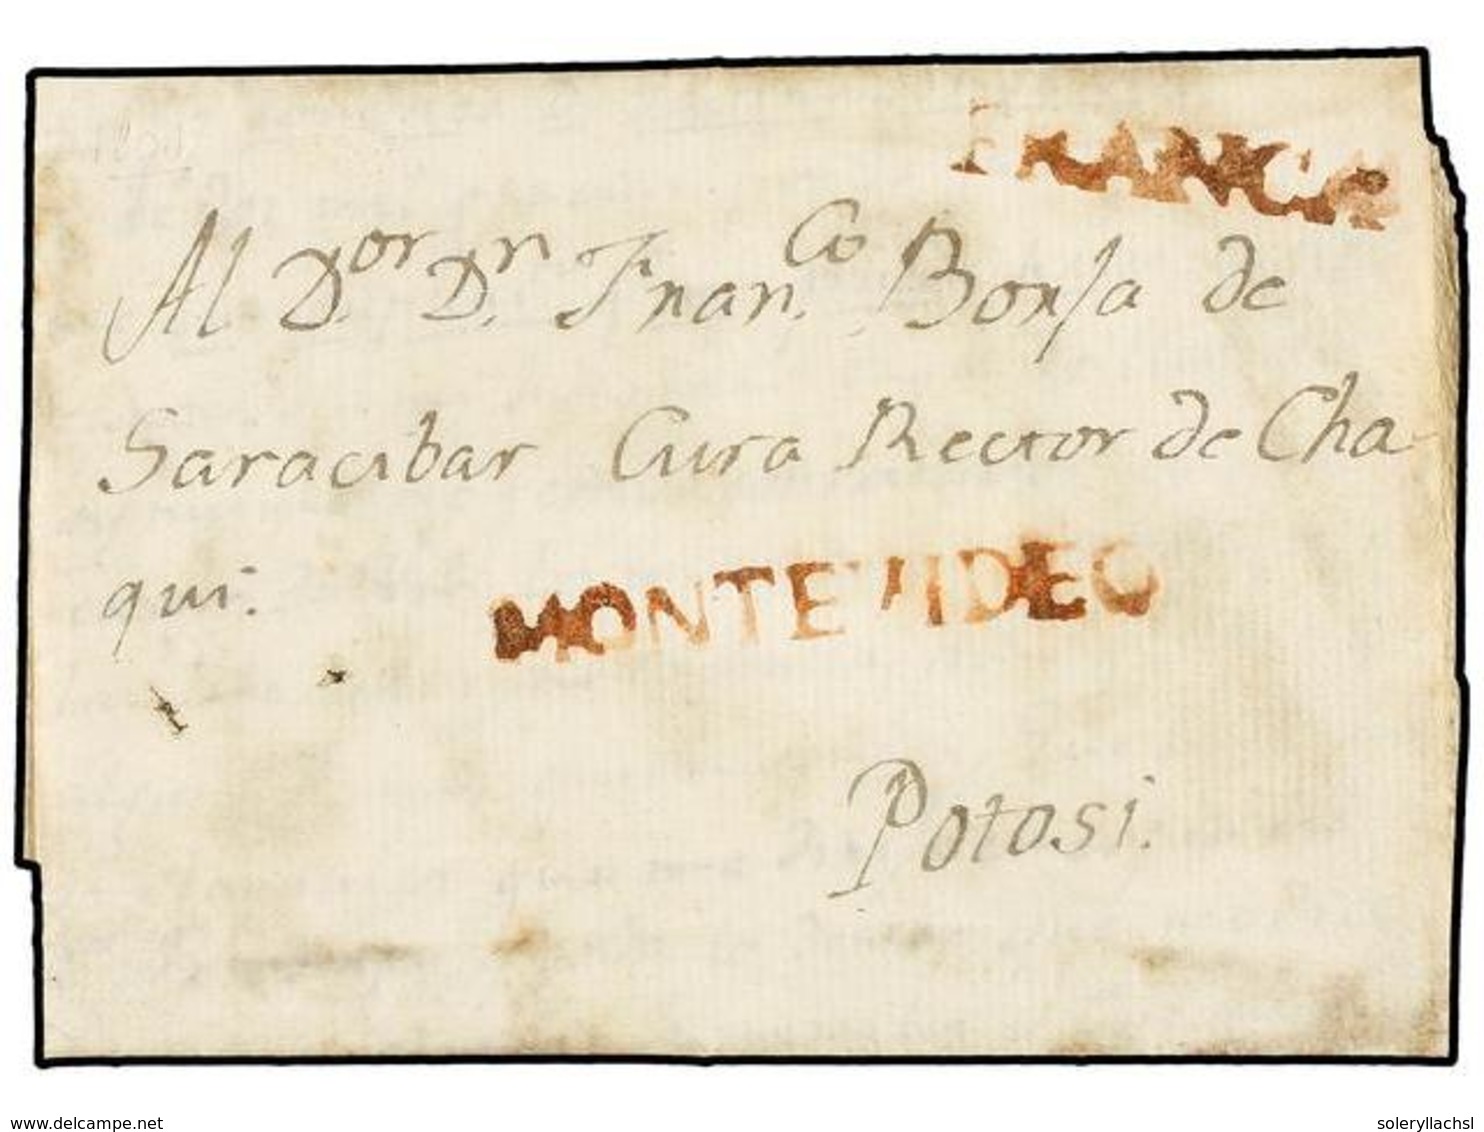 FRANCA
Al D.or D.n Fran.co Borja de
Saracibar Cura Rector de Cha-
qui.
MONTEVIDEO
Potosi.
delcampe.net
soleryllachsl